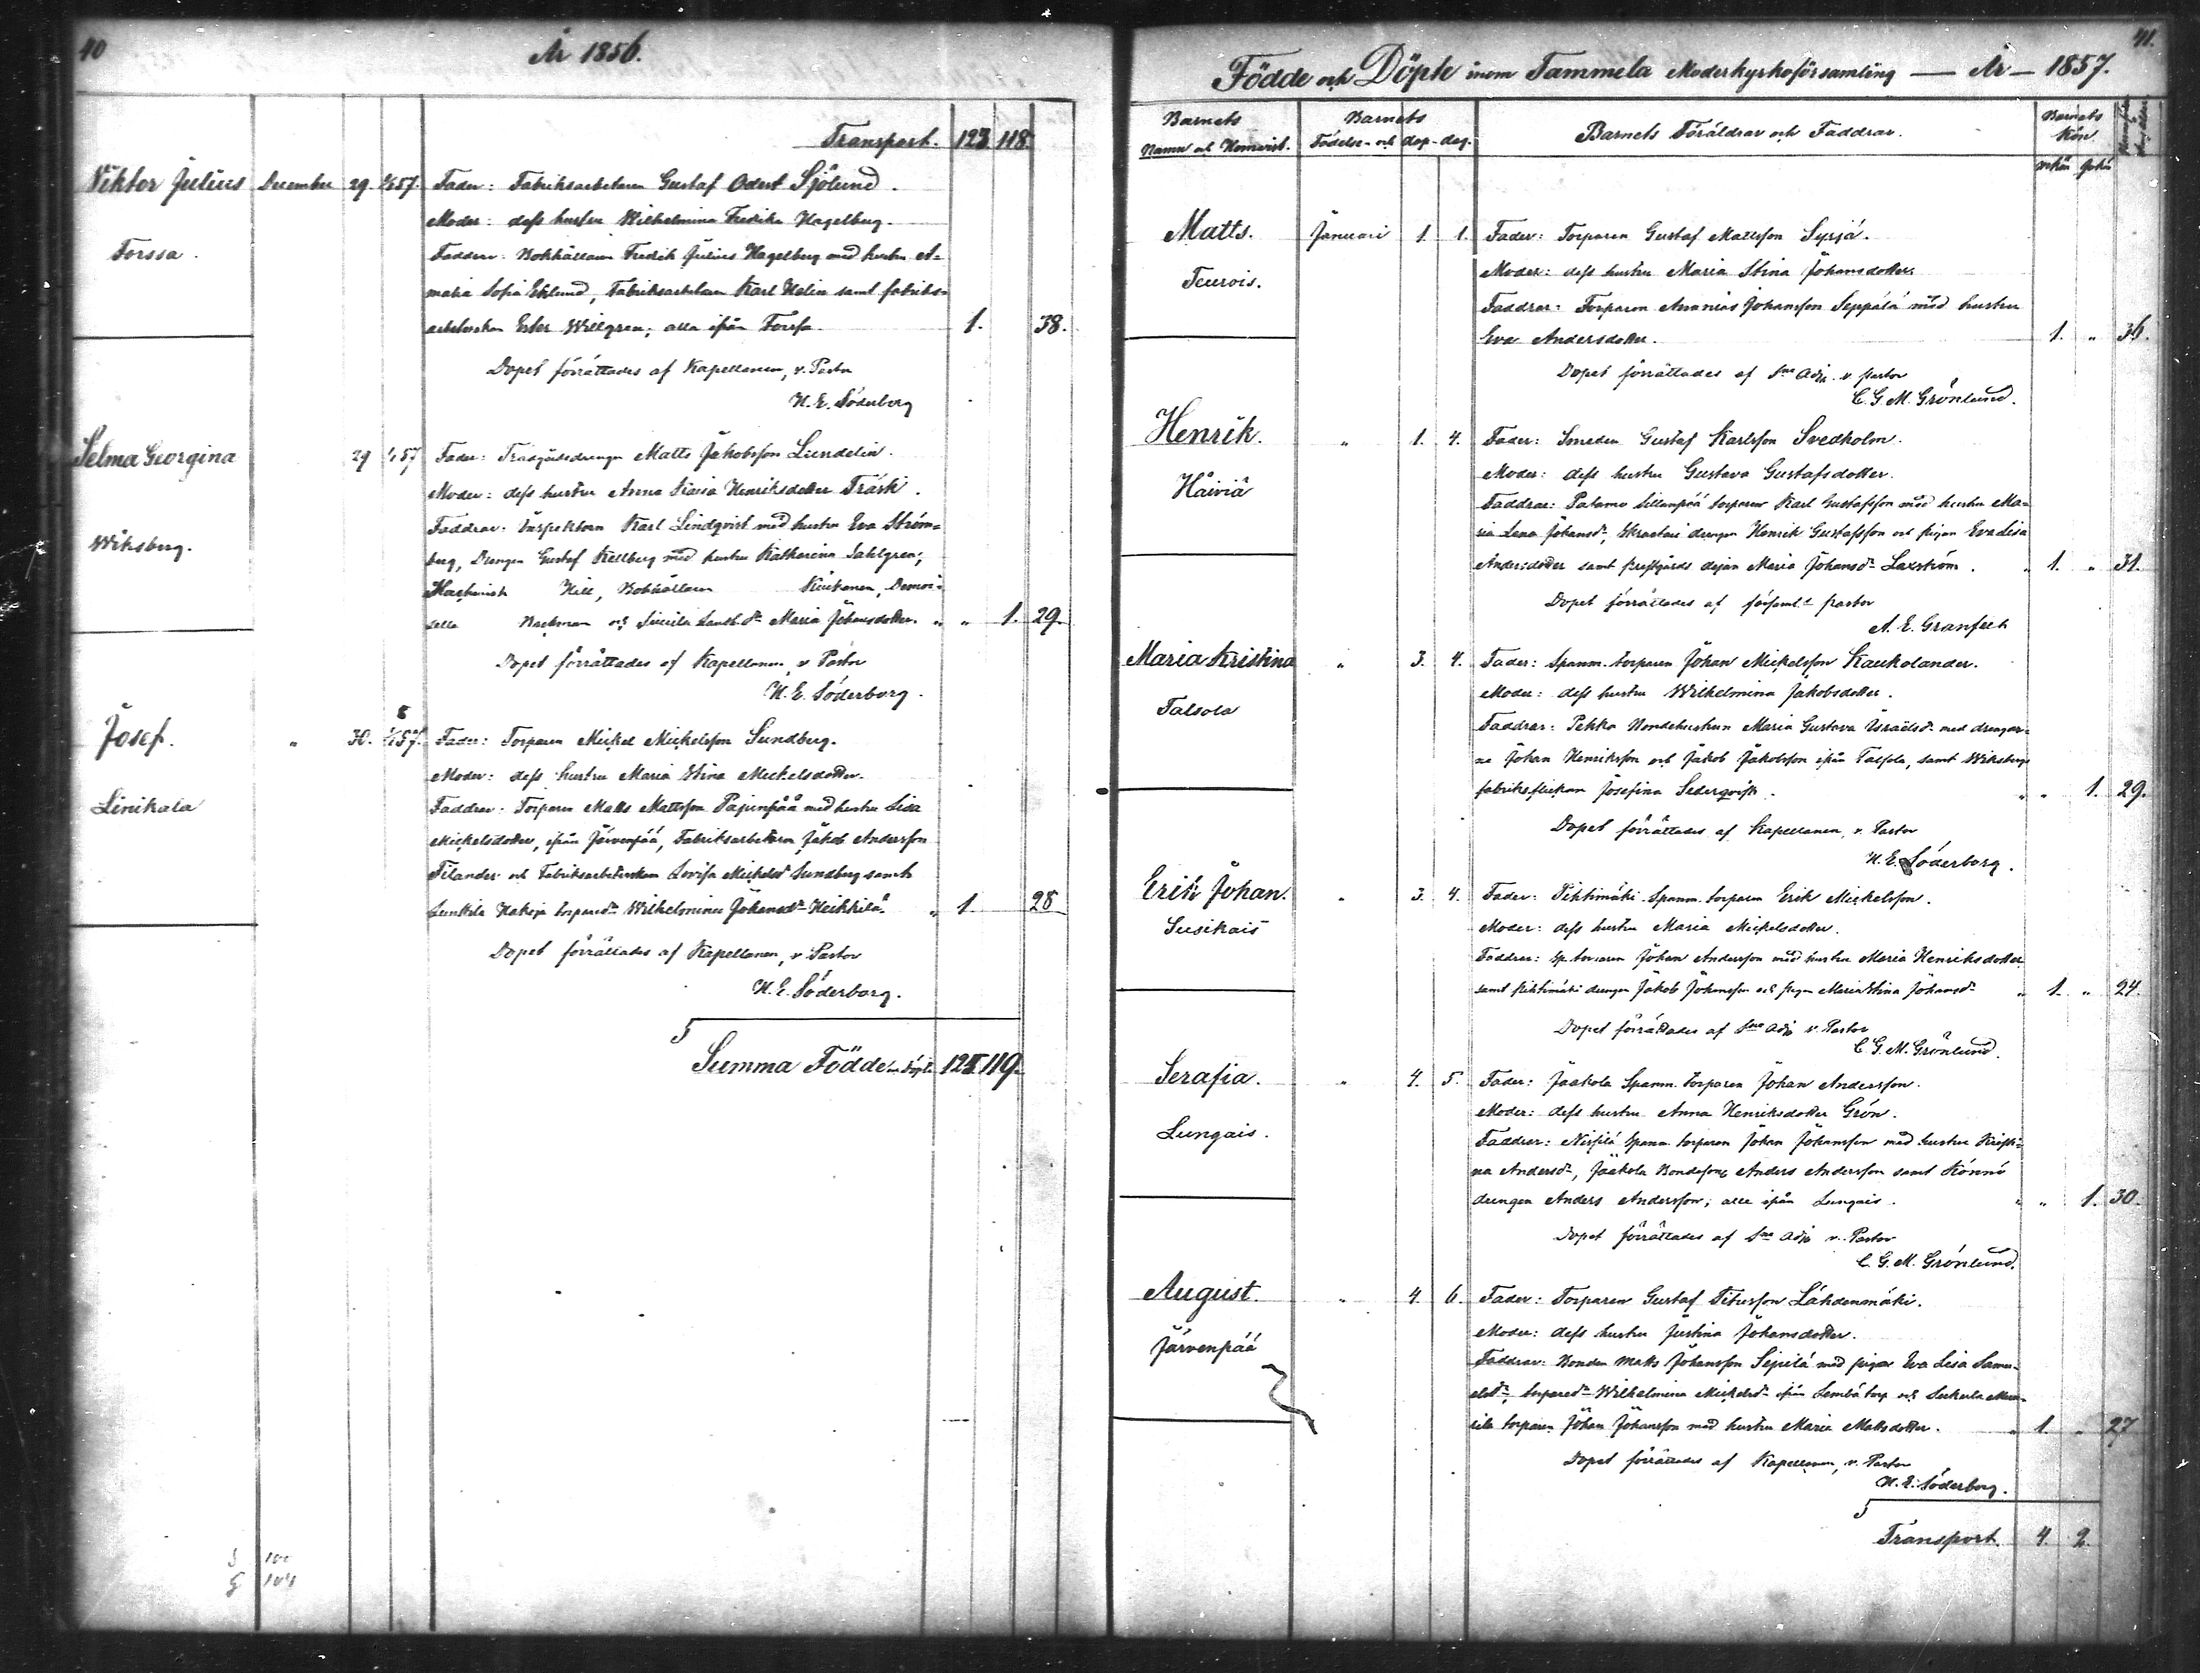 40
År 1856.
Transport. 123. 118.
Viktor Julius December 29. 57. Fader: Fabriksarbetaren Gustaf Sjölund.
Moder: dess hustru Wilhelmina Fredrika Hagelberg.
Forssa. Faddrar: Bokhållaren Fredrik Julius Hagelberg med hustru A-
malia Sofia Eklund, Fabriksarbetaren Karl Helin samt fabriks-
arbeterskan Ester Willgren; alla ifrån Forssa. 1. 38.
Dopet förrättades af Kapellanen, v. Pastor
H. E. Söderborg
Selma Georgina 29 57 Fader: Trädgårdsdrengen Matts Jakobsson Lundelin.
Moder: dess hustru Anna Maria Henriksdotter Träsk.
Wiksberg. Faddrar: Inspektoren Karl Lindqvist med hustru Eva Ström-
berg, Drengen Gustaf Kellberg med hustru Katharina Sahlgren;
Machinisk Hill, Bokhållaren Demoi-
selle Nackman och Maria Johansdotter. " " 1. 29.
Dopet förrättades af Kapellanen, v. Pastor
H. E. Söderborg.
Josef. " 30. 57. Fader: Torparen Mickel Mickelsson Sundberg.
Moder: dess hustru Maria Stina Mickelsdotter.
Linikala Faddrar: Torparen Matts Mattsson Pajunpää med hustru Lisa
Mickelsdotter, ifrån Järvenpää, Fabriksarbetaren Jakob Andersson
Tilander och Fabriksarbeterskan Lovisa Mickelsdr Sundberg samt
torparedr Wilhelmina Johansdr Heikkilä. " 1. 28
Dopet förrättades af Kapellanen, v. Pastor
H. E. Söderborg.
Summa Födde 119.
41.
Födde och Döpte inom Tammela Moderkyrkoförsamling — År — 1857.
Barnets Namn och Hemvist. Barnets Födelse- och dop-dag. Barnets Föräldrar och Faddrar. Barnets Kön
Matts. Januari 1. 1. Fader: Torparen Gustaf Mattsson Syrjä.
Moder: dess hustru Maria Stina Johansdotter.
Teurois. Faddrar: Torparen Ananias Johansson Seppälä med hustru
Eva Andersdotter. 1. " 36.
Dopet förrättades af Sne Adj. v. pastor
C. G. M. Grönlund.
Henrik. " 1. 4. Fader: Smeden Gustaf Karlsson Svedholm.
Moder: dess hustru Gustava Gustafsdotter.
Häiviä Faddrar: Patamo Sillanpää torparen Karl Gustafsson med hustru Ma-
ria Lena Johansdr, drengen Henrik Gustafsson och pigan Eva Lisa
Andersdotter samt prestgårds dejan Maria Johansdr Laxström. " 1. " 31.
Dopet förrättades af församls pastor
A. E. Granfelt
Maria Kristina " 3. 4. Fader: Spanm. torparen Johan Mickelsson Kaukolander.
Moder: dess hustru Wilhelmina Jakobsdotter.
Talsola Faddrar: Pekka Bondehustrun Maria Gustava Israelsdr med drengar-
ne Johan Henriksson och Jakob Jakobsson ifrån Talsola, samt Wiksbergs
fabriksflickan Josefina Sederqvist. " " 1. 29.
Dopet förrättades af Kapellanen, v. Pastor
H. E. Söderborg.
Erik Johan. " 3. 4. Fader: Pihtimäki Spanm. torparen Erik Mickelsson.
Susikais Moder: dess hustru Maria Mickelsdotter.
Faddrar: Sp. torparen Johan Andersson med hustru Maria Henriksdotter
samt Pihtimäki drengen Jakob Johansson och pigan Maria Stina Johansdr " 1. " 24.
Dopet förrättades af Sne Adj. v. Pastor
C. G. M. Grönlund.
Serafia. " 4. 5. Fader: Jaakola Spanm. torparen Johan Andersson.
Moder: dess hustru Anna Henriksdotter Grön.
Lungais. Faddrar: Spanm. torparen Johan Johansson med hustru Kristi-
na Andersdr, Jaakola Bondeson Anders Andersson samt Könnö
drengen Anders Andersson; alla ifrån Lungais. " " 1. 30.
Dopet förrättades af Sne Adj. v. Pastor
C. G. M. Grönlund.
August. " 4. 6. Fader: Torparen Gustaf Titusson Lähdenmäki.
Järvenpää Moder: dess hustru Justina Johansdotter.
Faddrar: Bonden Matts Johansson Sipilä med pigan Eva Lisa Samu-
elsdr, torparedr Wilhelmina Mickelsdr ifrån torp och
torparen Johan Johansson med hustru Maria Mattsdotter. " 1. " 27
Dopet förrättades af Kapellanen, v. Pastor
H. E. Söderborg.
Transport. 4. 2.